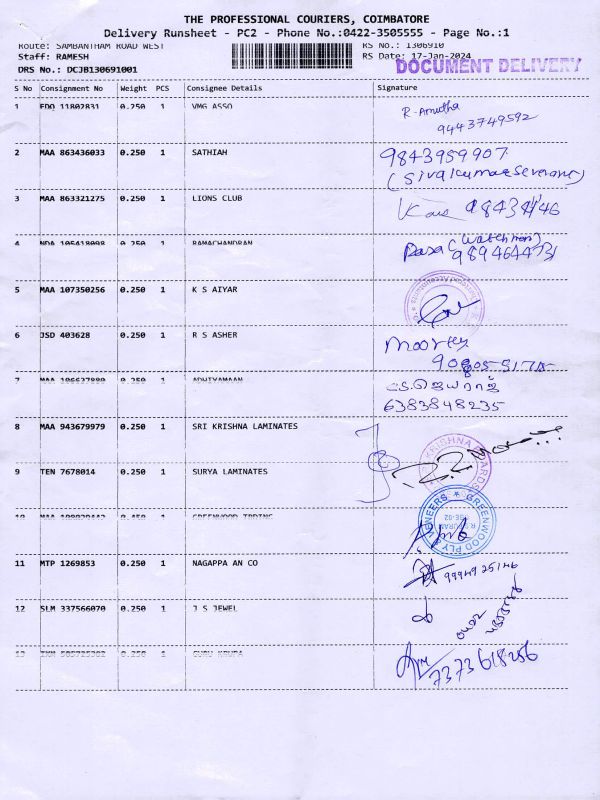 THE PROFESSIONAL COURIERS, COIMBATORE
Delivery Runsheet - PC2 - Phone No.:0422-3505555 - Page No.:1
Route: SAMBANTHAM ROAD WEST RS No.: 1306910
Staff: RAMESH RS Date: 17-Jan-2024
DOCUMENT DELIVERY
DRS No.: DCJB130691001
S No Consignment No Weight PCS Consignee Details Signature
1 EDO 11802831 0.250 1 VMG ASSO R-Amutha
9443749592
2 MAA 863436033 0.250 1 SATHIAH 9843959907
(Sivakumar
3 MAA 863321275 0.250 1 LIONS CLUB
4 0.250 1 RAMACHANDRAN (Watchman)
5 MAA 107350256 0.250 1 K S AIYAR
6 JSD 403628 0.250 1 R S ASHER
7 0.250 1 ADHIYAMAAN ஜெயராஜ்
6383848235
8 MAA 943679979 0.250 1 SRI KRISHNA LAMINATES
KRISHNA
9 TEN 7678014 0.250 1 SURYA LAMINATES
10 1 GREENWOOD TRDING GREENWOOD PLY & VENEERS
11 MTP 1269853 0.250 1 NAGAPPA AN CO 9994925146
12 SLM 337566070 0.250 1 J S JEWEL
13 0.250 1 GURU KRUPA 7373618256